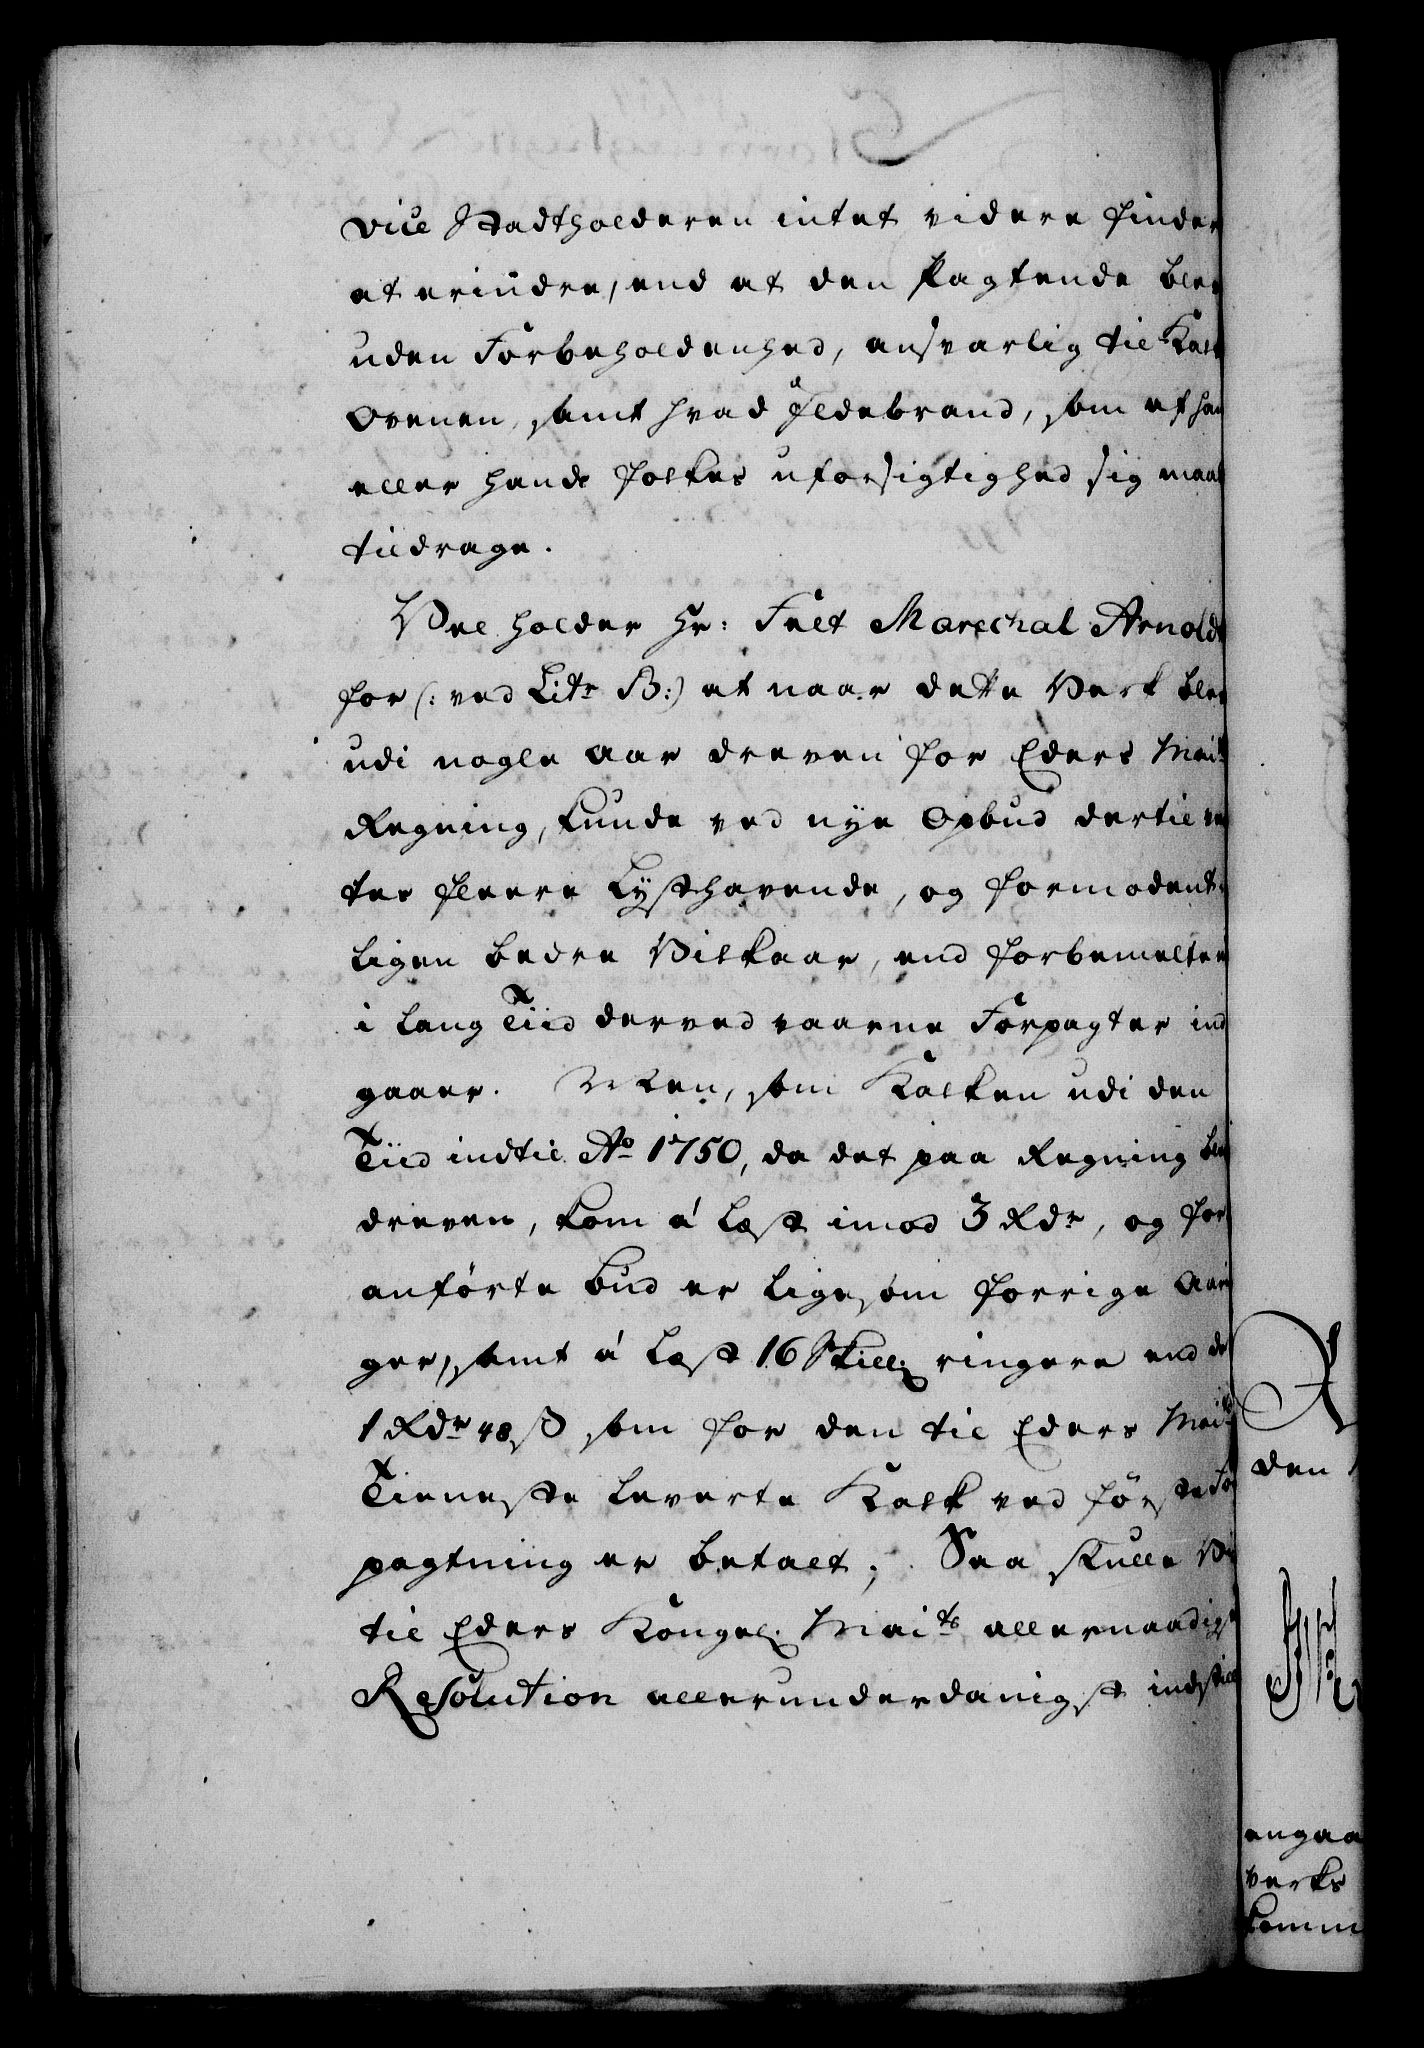 Vice Stadtholderen intet videre finder
at erindre, end at den Pagtende blev
uden Forbeholdenhed, ansvarlig til Kalk
Ovenen, samt hvad Ildebrand, som af ham
eller hands Folkes uforsigtighed sig maat
tildrage.
Vel holder Hr: Felt Marechal Arnoldt
for (: ved Litr B:) at naar dette Verk blev
udi nogle Aar dreven for Eders Maits
Regning, kunde ved nye Opbud dertil ven
tes fleere Lysthavende, og formodent-
ligen bedre Vilkaar, end forbemelte
i lang Tiid derved vaarne Forpagter ind
gaaer. Men, som Kalken udi den
Tiid indtil Ao 1750, da det paa Regning blev
dreven, kom á Læst imod 3 Rdr, og for
anførte bud er ligesom forrige Aarin
ger, samt á Læst 16 Skill: ringere end de
1 Rdr 48 ß som for den til Eders Maits
Tieneste leverte Kalk ved første For
pagtning er betalt; Saa skulle Vi
til Eders Kongel: Maits allernaadigste
Resolution allerunderdanigst indstille
den
angaa
verks
komm